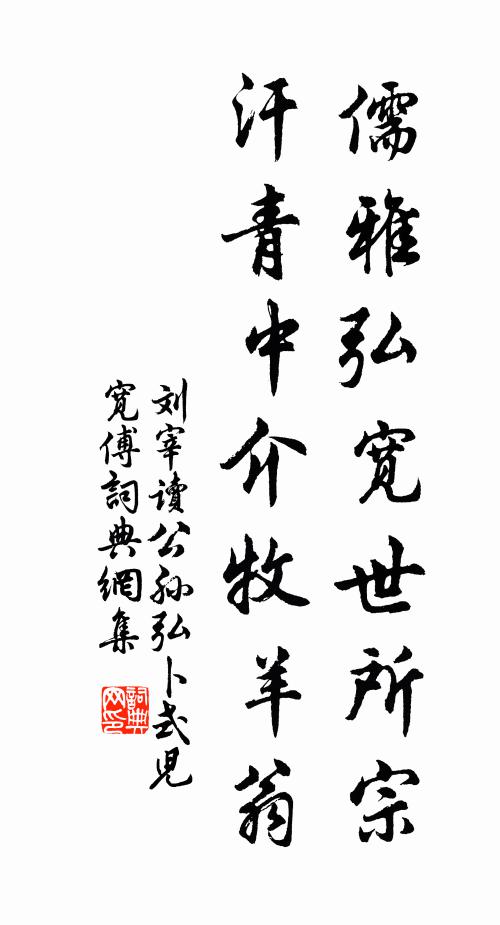 儒雅弘宽世所宗
汗青中介牧羊翁
刘宰读公孙弘卜式児
宽傅詞典網集
詞典网印